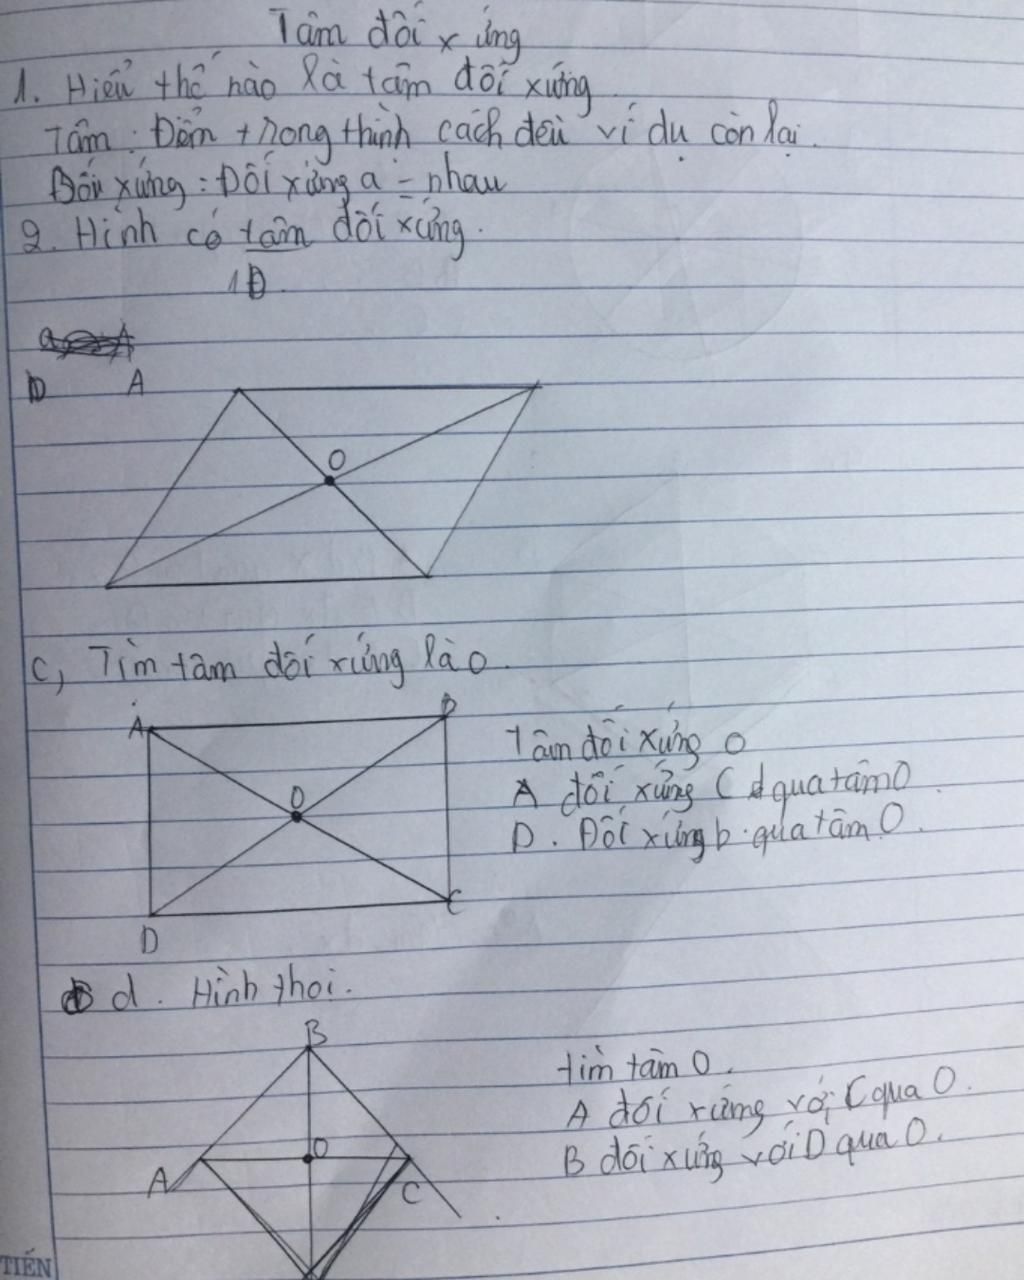 Tâm đối xứng
1. Hiểu thế nào là tâm đối xứng
Tâm: Điểm trong thình cách đều ví dụ còn lại.
Đối xứng: Đối xứng a - nhau
2. Hình có tâm đối xứng.
1Đ.
D A
O
c, Tìm tâm đối xứng là O.
A B
O
D C
Tâm đối xứng O
A đối xứng C qua tâm O.
D. Đối xứng b. qua tâm O.
d. Hình thoi.
B
A O C
tìm tâm O.
A đối xứng với C qua O.
B đối xứng với D qua O.
TIẾN